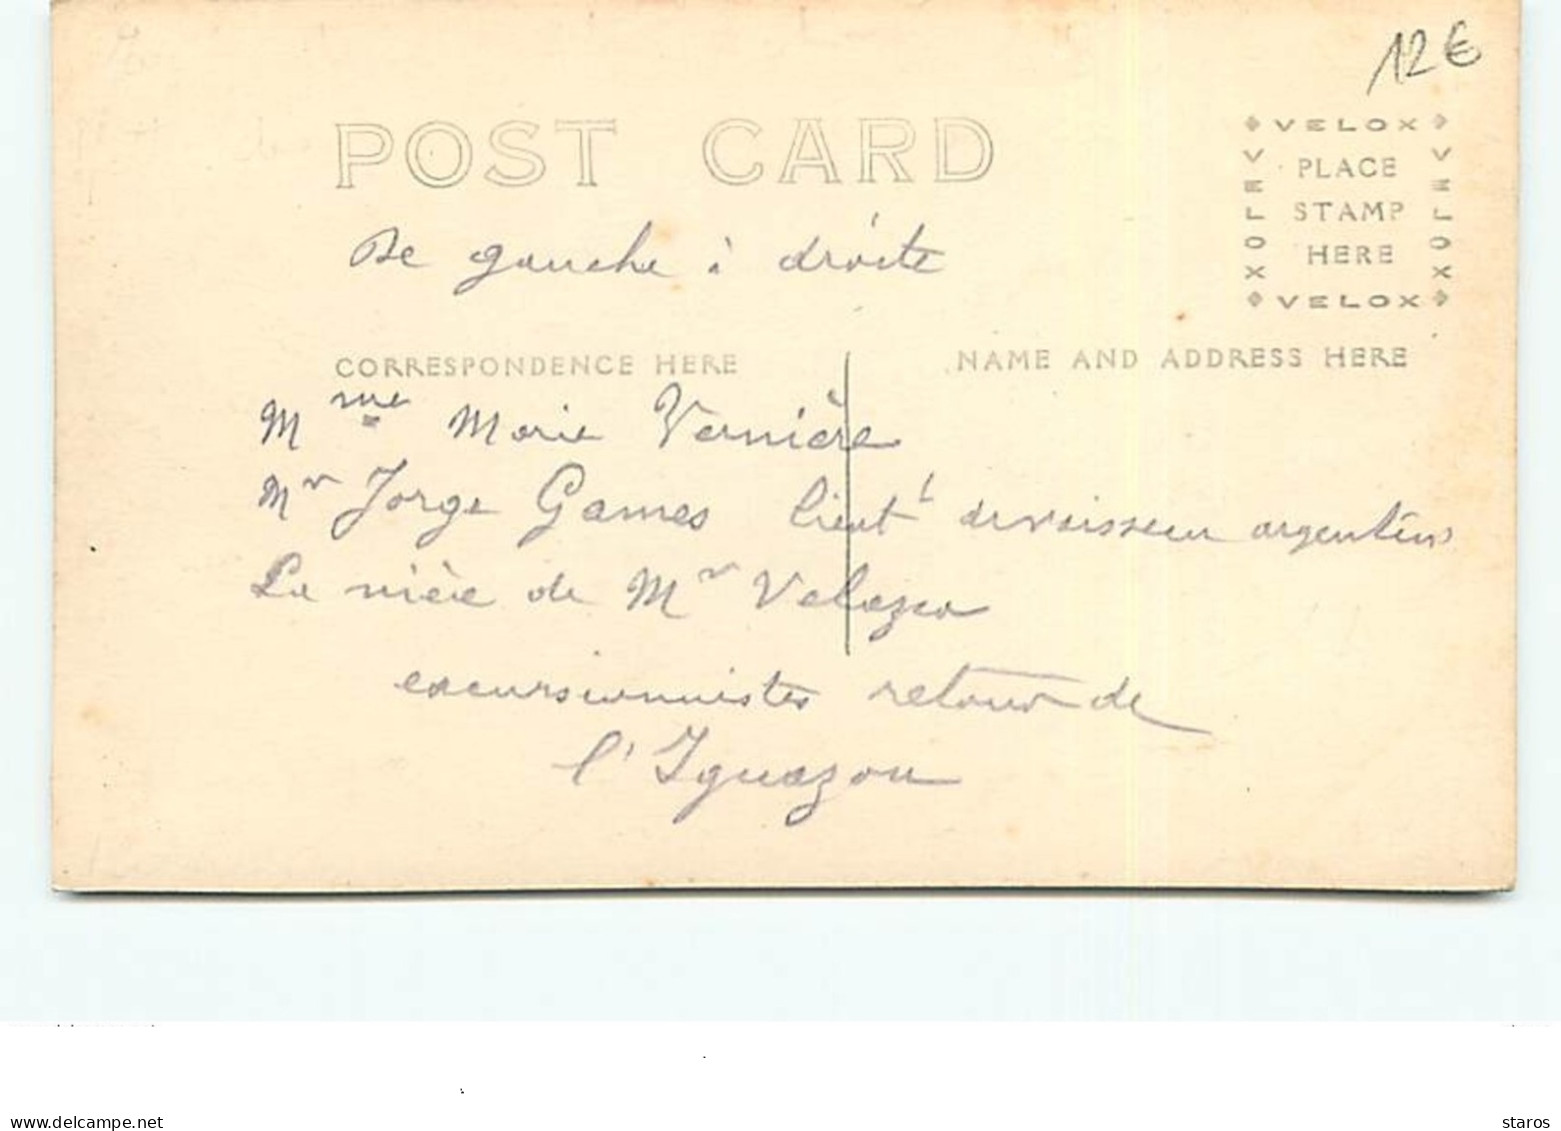 12€
POST CARD
VELOX
VELOX PLACE VELOX
STAMP
HERE
VELOX
De gauche à droite
CORRESPONDENCE HERE
NAME AND ADDRESS HERE
Mme Marie Vernière
Mr Jorge Games lieut argentin
La nièce de Mr Velazco
excursionnistes retour de
l'Iguazou
www.delcampe.net
staros